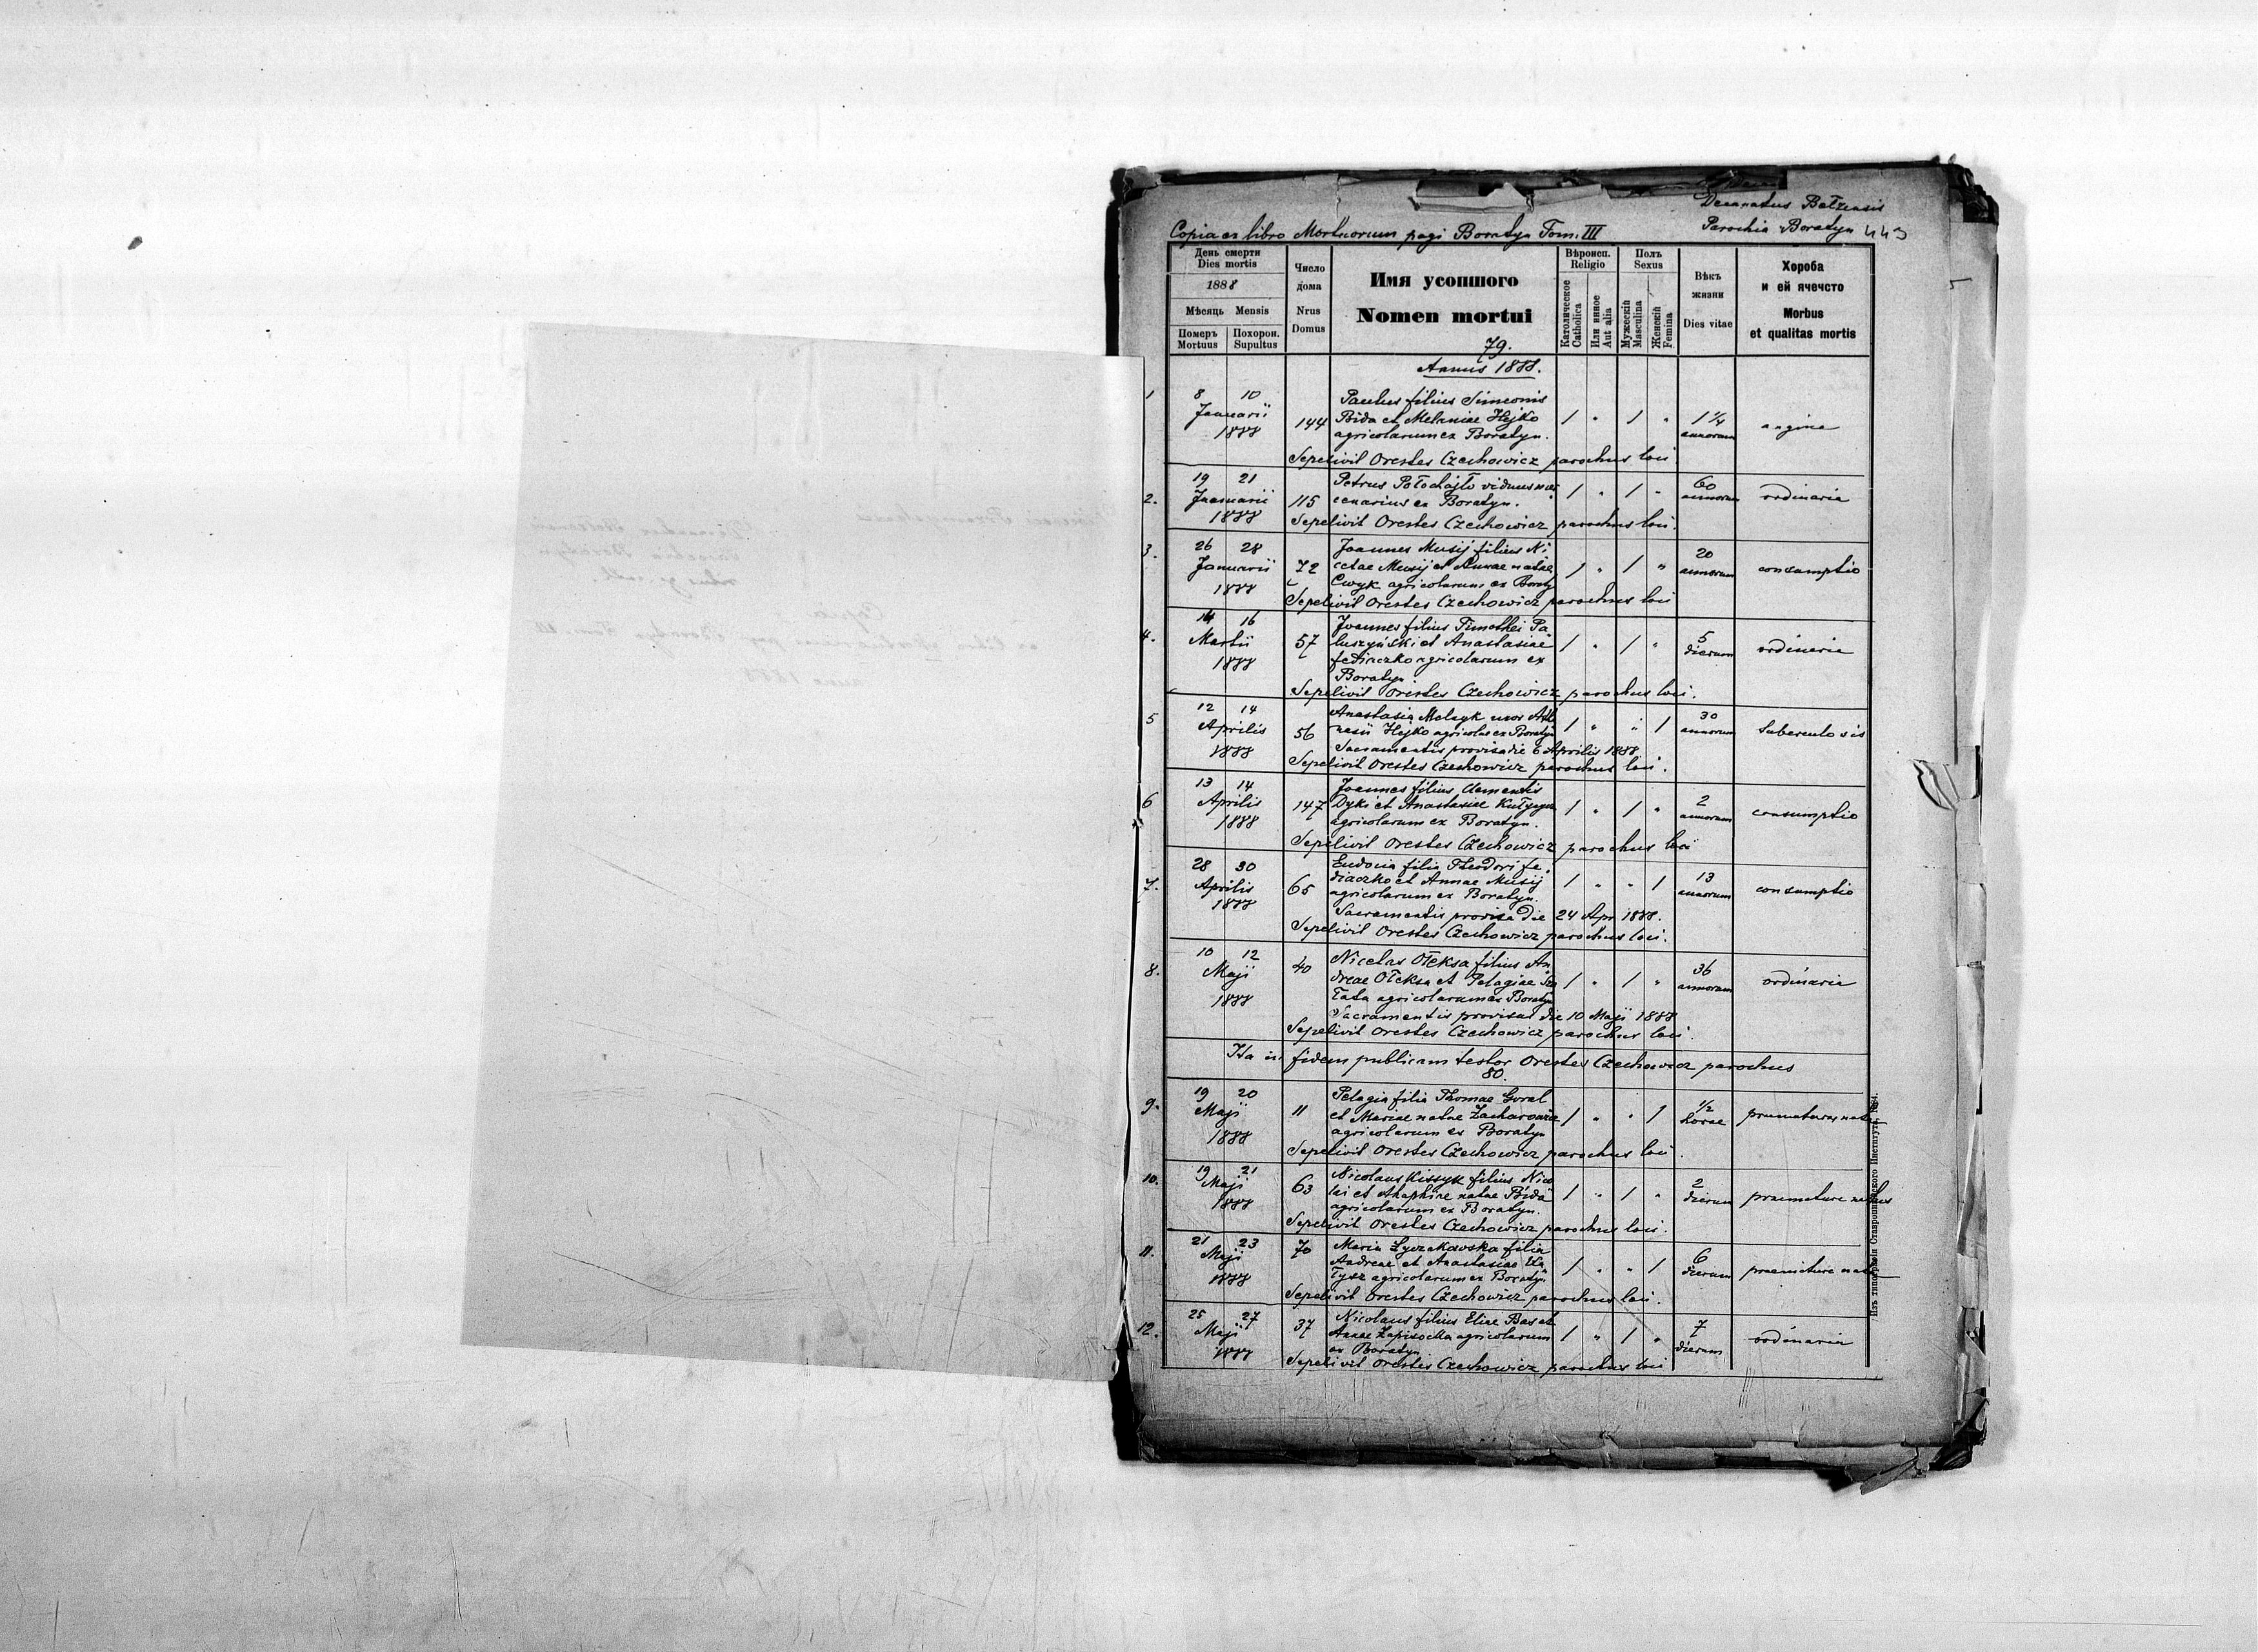 Decanatus Bełzensis
Parochia Boratyn 443
Copia ex libro Mortuorum pagi Boratyn Tom. III
День смерти
Dies mortis
1888
Мѣсяць Mensis
Померъ Похорон.
Mortuus Supultus
Число
дома
Nrus
Domus
Имя усопшого
Nomen mortui
Вѣроисп.
Religio
Католическое
Catholica
Или инное
Aut alia
Полъ
Sexus
Мужескій
Masculina
Женскій
Femina
Вѣкъ
жизни
Dies vitae
Хороба
и ей ячечсто
Morbus
et qualitas mortis
79.
Annus 1888.
1 8 10 Januarii 1888 144 Paulus filius Simeonis
Bida et Melaniae Hejko 1 " 1 " 1 1/4 annorum angina
agricolarum ex Boratyn.
Sepelivit Orestes Czechowicz parochus loci
2. 19 21 Januarii 1888 115 Petrus Potochajło viduus mer
cenarius ex Boratyn. 1 " 1 " 60 annorum ordinaria
Sepelivit Orestes Czechowicz parochus loci.
3. 26 28 Januarii 1888 72 Joannes Musij filius Ni
cetae Musij et Annae natae 1 " 1 " 20 annorum consumptio
Cwyk agricolarum ex Boraty
Sepelivit Orestes Czechowicz parochus loci
4. 14 16 Martii 1888 57 Joannes filius Timothei Pa
luszyński et Anastasiae 1 " 1 " 5 dierum ordinaria
Fediaczko agricolarum ex
Boratyn
Sepelivit Orestes Czechowicz parochus loci.
5 12 14 Aprilis 1888 56 Anastasia uxor
Hejko agricolae ex Boratyn 1 " " 1 30 annorum tuberculosis
Sacramentis provisa die 6 Aprilis 1888.
Sepelivit Orestes Czechowicz parochus loci.
6 13 14 Aprilis 1888 147 Joannes filius Clementis
Dyki et Anastasiae 1 " 1 " 2 annorum consumptio
agricolarum ex Boratyn.
Sepelivit Orestes Czechowicz parochus loci
7. 28 30 Aprilis 1888 65 Eudocia filia Theodori Fe
diaczko et Annae Musij 1 " " 1 13 annorum consumptio
agricolarum ex Boratyn.
Sacramentis provisa die 24 Apr 1888.
Sepelivit Orestes Czechowicz parochus loci.
8. 10 12 Maji 1888 40 Nicetas Ołeksa filius An
dreae Ołeksa et Pelagiae 1 " 1 " 36 annorum ordinaria
agricolarum ex Boratyn
Sacramentis provisus die 10 Maji 1888
Sepelivit Orestes Czechowicz parochus loci.
Ita in fidem publicam testor Orestes Czechowicz parochus
80.
9. 19 20 Maji 1888 11 Pelagia filia Thomae Goral
et Mariae natae Zacharowicz 1 " " 1 1/2 horae praemature nata
agricolarum ex Boratyn
Sepelivit Orestes Czechowicz parochus loci.
10. 19 21 Maji 1888 63 Nicolaus Kissyk filius Nico
lai et Ahaphiae natae Bida 1 " 1 " 2 dierum praemature natus
agricolarum ex Boratyn.
Sepelivit Orestes Czechowicz parochus loci.
11. 21 23 Maji 1888 70 Maria Łyczakowska filia
Andreae et Anastasiae 1 " " 1 6 dierum praemature nata
agricolarum ex Boratyn
Sepelivit Orestes Czechowicz parochus loci.
12. 25 27 Maji 1888 37 Nicolaus filius Eliae Bas et
Annae Zapisocka agricolarum 1 " 1 " 7 dierum ordinaria
ex Boratyn
Sepelivit Orestes Czechowicz parochus loci
Изъ типографіи Ставропигійского Института